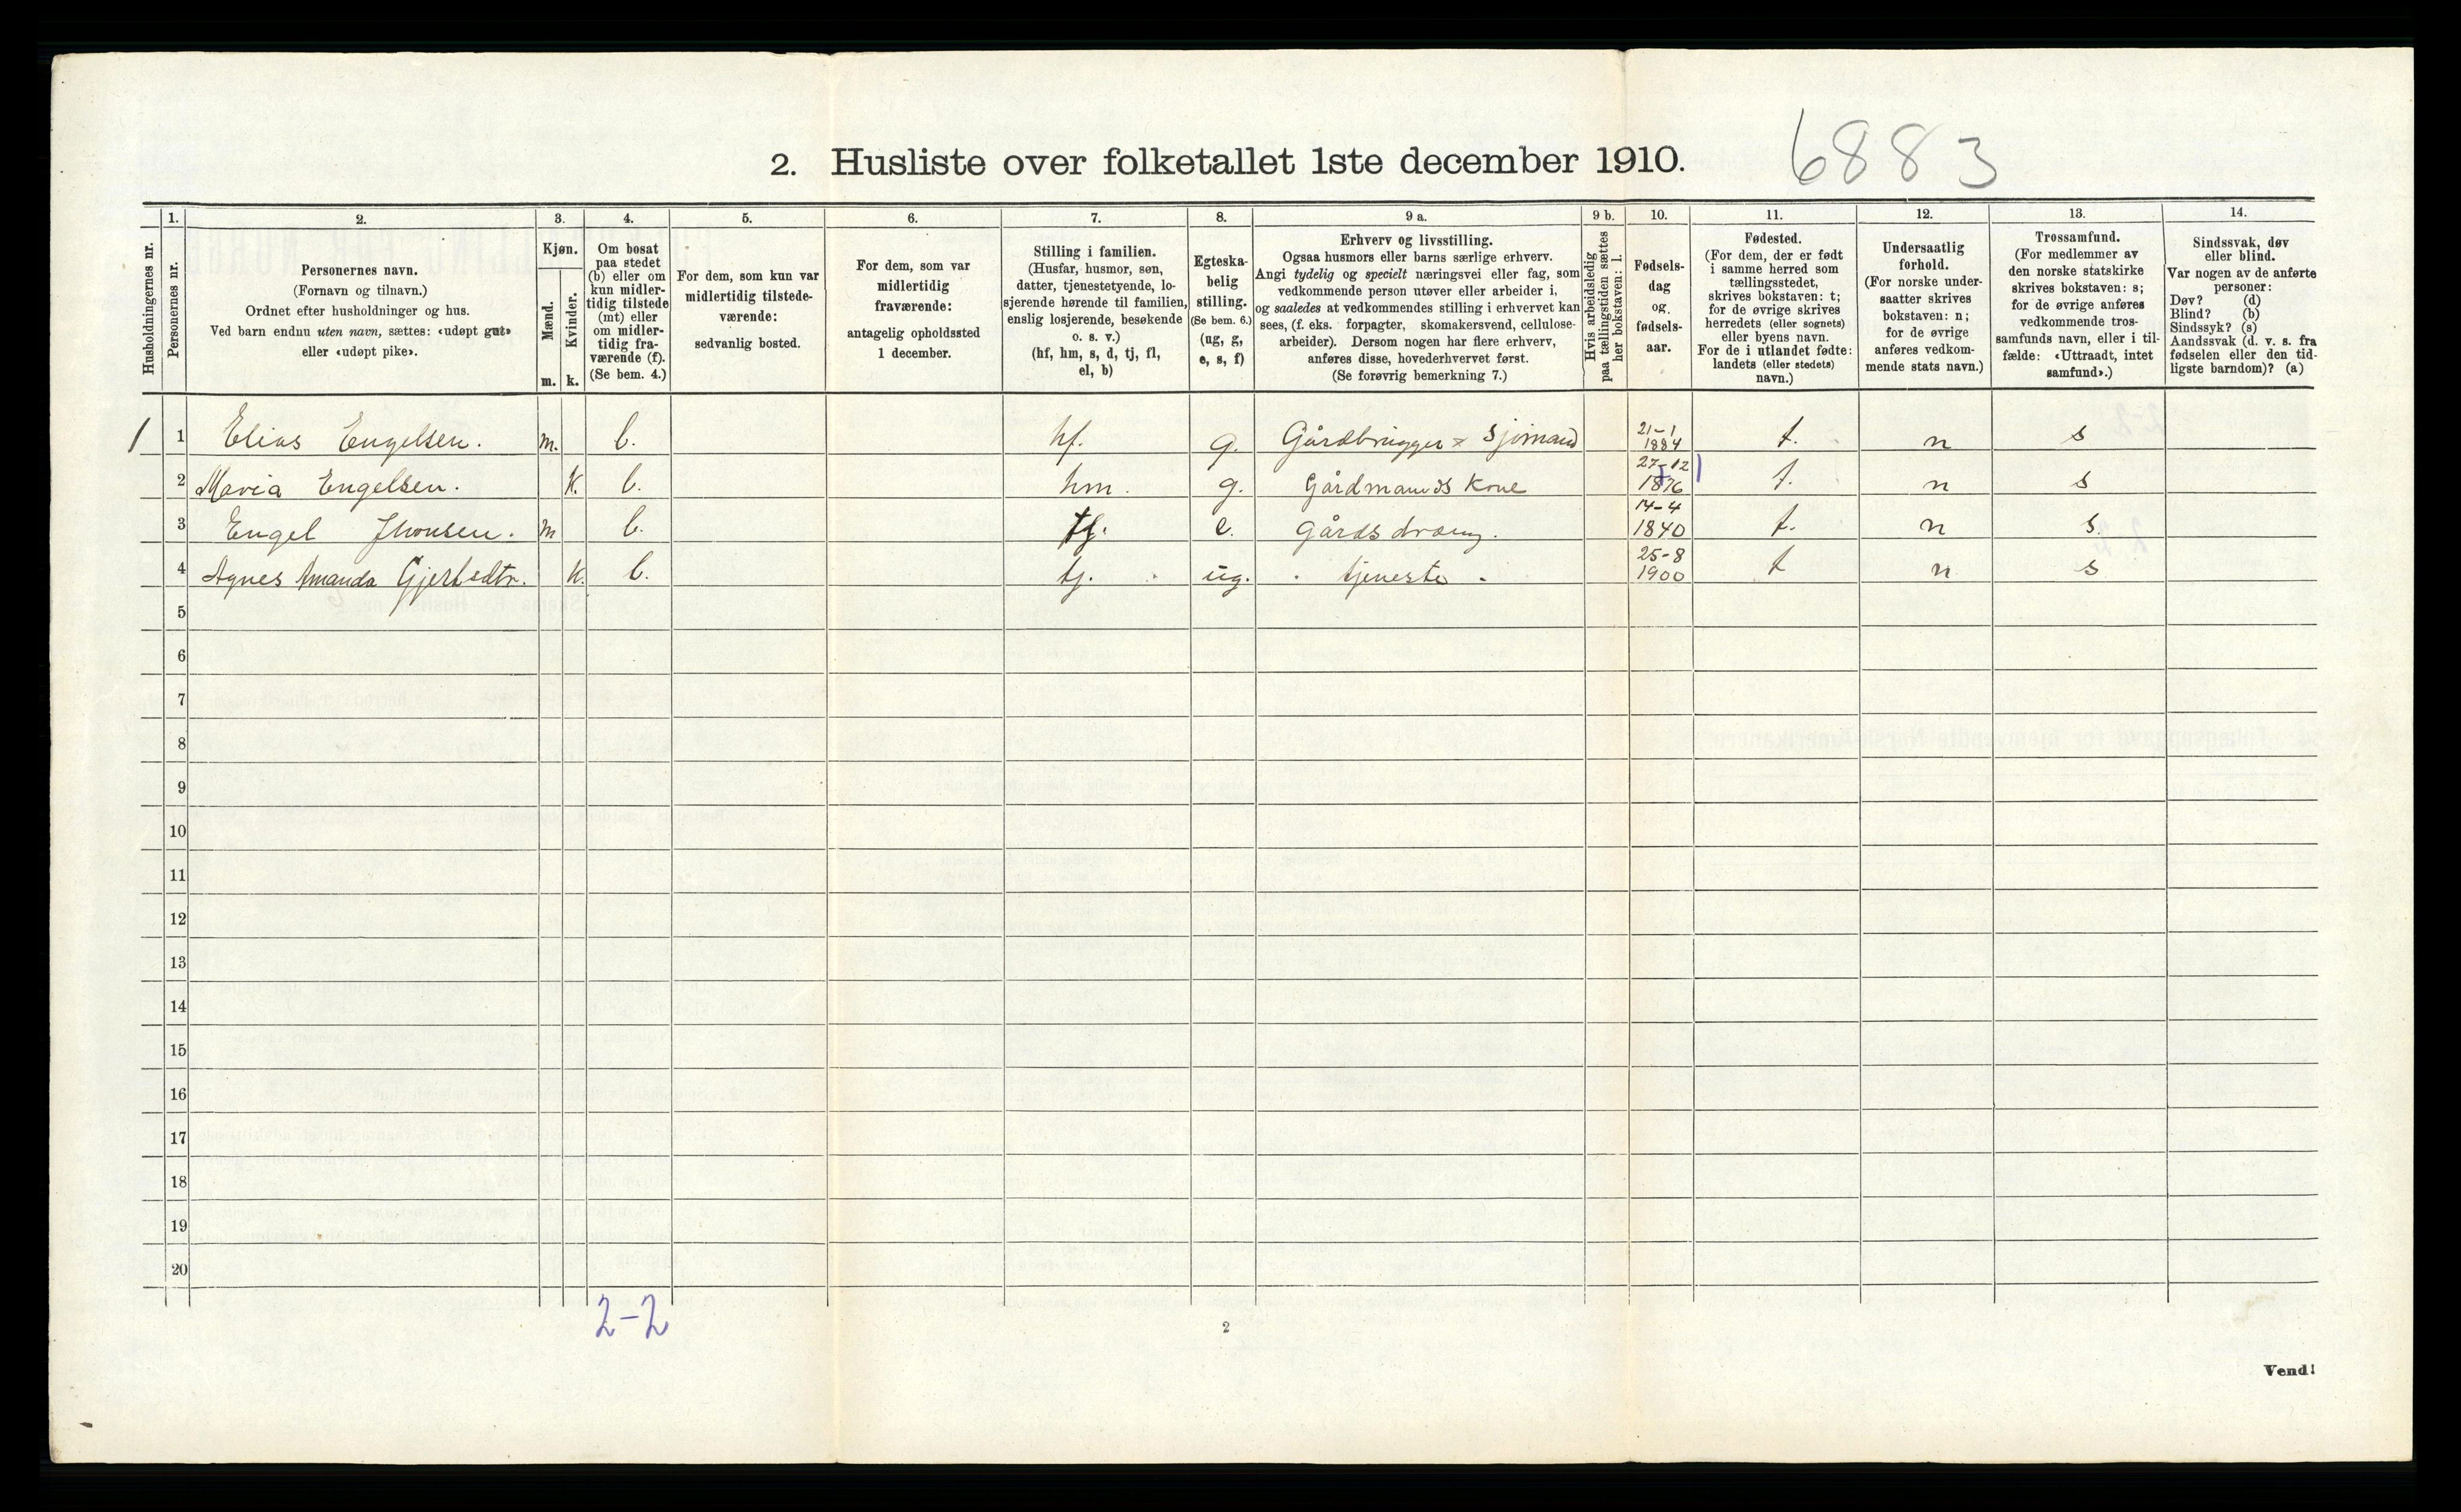 6883
2. Husliste over folketallet 1ste december 1910.
Husholdningernes nr.
1.
Personernes nr.
2.
Personernes navn.
(Fornavn og tilnavn.)
Ordnet efter husholdninger og hus.
Ved barn endnu uten navn, sættes: «udøpt gut»
eller «udøpt pike».
3.
Kjøn.
Mænd.
m.
Kvinder.
k.
4.
Om bosat
paa stedet
(b) eller om
kun midler-
tidig tilstede
(mt) eller
om midler-
tidig fra-
værende (f).
(Se bem. 4.)
5.
For dem, som kun var
midlertidig tilstede-
værende:
sedvanlig bosted.
6.
For dem, som var
midlertidig
fraværende:
antagelig opholdssted
1 december.
7.
Stilling i familien.
(Husfar, husmor, søn,
datter, tjenestetyende, lo-
sjerende hørende til familien,
enslig losjerende, besøkende
o. s. v.)
(hf, hm, s, d, tj, fl,
el, b)
8.
Egteska-
belig
stilling.
(Se bem. 6.)
(ug, g,
e, s, f)
9 a.
Erhverv og livsstilling.
Ogsaa husmors eller barns særlige erhverv.
Angi tydelig og specielt næringsvei eller fag, som
vedkommende person utøver eller arbeider i,
og saaledes at vedkommendes stilling i erhvervet kan
sees, (f. eks. forpagter, skomakersvend, cellulose-
arbeider). Dersom nogen har flere erhverv,
anføres disse, hovederhvervet først.
(Se forøvrig bemerkning 7.)
9 b.
Hvis arbeidsledig
paa tællingstiden sættes
her bokstaven: l.
10.
Fødsels-
dag
og
fødsels-
aar.
11.
Fødested.
(For dem, der er født
i samme herred som
tællingsstedet,
skrives bokstaven: t;
for de øvrige skrives
herredets (eller sognets)
eller byens navn.
For de i utlandet fødte:
landets (eller stedets)
navn.)
12.
Undersaatlig
forhold.
(For norske under-
saatter skrives
bokstaven: n;
for de øvrige
anføres vedkom-
mende stats navn.)
13.
Trossamfund.
(For medlemmer av
den norske statskirke
skrives bokstaven: s;
for de øvrige anføres
vedkommende tros-
samfunds navn, eller i til-
fælde: «Uttraadt, intet
samfund».)
14.
Sindssvak, døv
eller blind.
Var nogen av de anførte
personer:
Døv? (d)
Blind? (b)
Sindssyk? (s)
Aandssvak (d. v. s. fra
fødselen eller den tid-
ligste barndom)? (a)
1 1 Elias Engelsen. m. b. hf. g. Gårdbrugger × Sjömand 21-1 1884 t. n s
2 Maria Engelsen. k. b. hm. g. Gårdmands Kone 27-12 1876 t. n s
3 Engel Jhonsen. m b. tj. e. Gårds dræng. 14-4 1840 t. n s.
4 Agnes Amanda Gjertsdtr. k. b. tj. ug. tjeneste 25-8 1900 t n s
5
6
7
8
9
10
11
12
13
14
15
16
17
18
19
20
2-2
2
Vend!